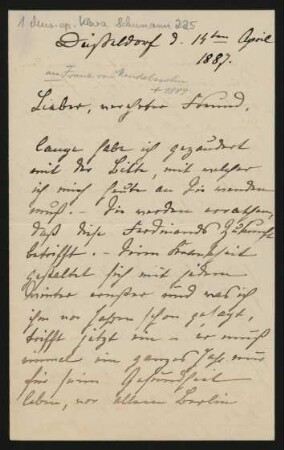 1 Mus. ep. Klara Schumann 225
Düsseldorf d. 14ten April
1887.
an Franz von Mendelssohn
+ 1889
Lieber, verehrter Freund,
lange habe ich gezaudert
mit der Bitte, mit welcher
ich mich heute an Sie wenden
muß. – Sie werden errathen,
daß diese Ferdinands Zukunft
betrifft. – Seine Krankheit
gestaltet sich mit jedem
Winter ernster und was ich
ihm vor Jahren schon gesagt,
trifft jetzt ein – er muß
einmal ein ganzes Jahr nur
für seine Gesundheit
leben, vor allem Berlin